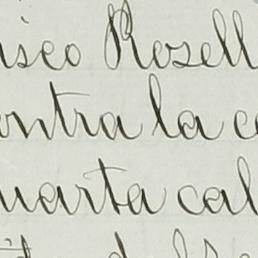 isco Rosell
ontra la c
uarta cal